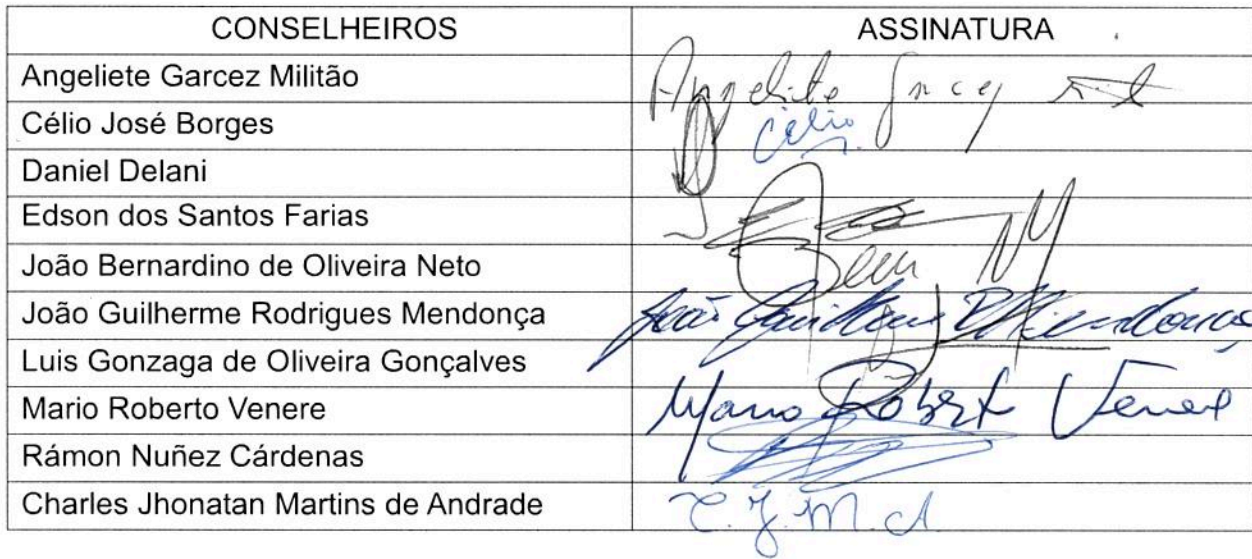 CONSELHEIROS ASSINATURA
Angeliete Garcez Militão Angeliete
Célio José Borges Célio
Daniel Delani
Edson dos Santos Farias
João Bernardino de Oliveira Neto
João Guilherme Rodrigues Mendonça João Guilherme R Mendonça
Luis Gonzaga de Oliveira Gonçalves
Mario Roberto Venere Mario Robert Venere
Rámon Nuñez Cárdenas
Charles Jhonatan Martins de Andrade C. J. M. A